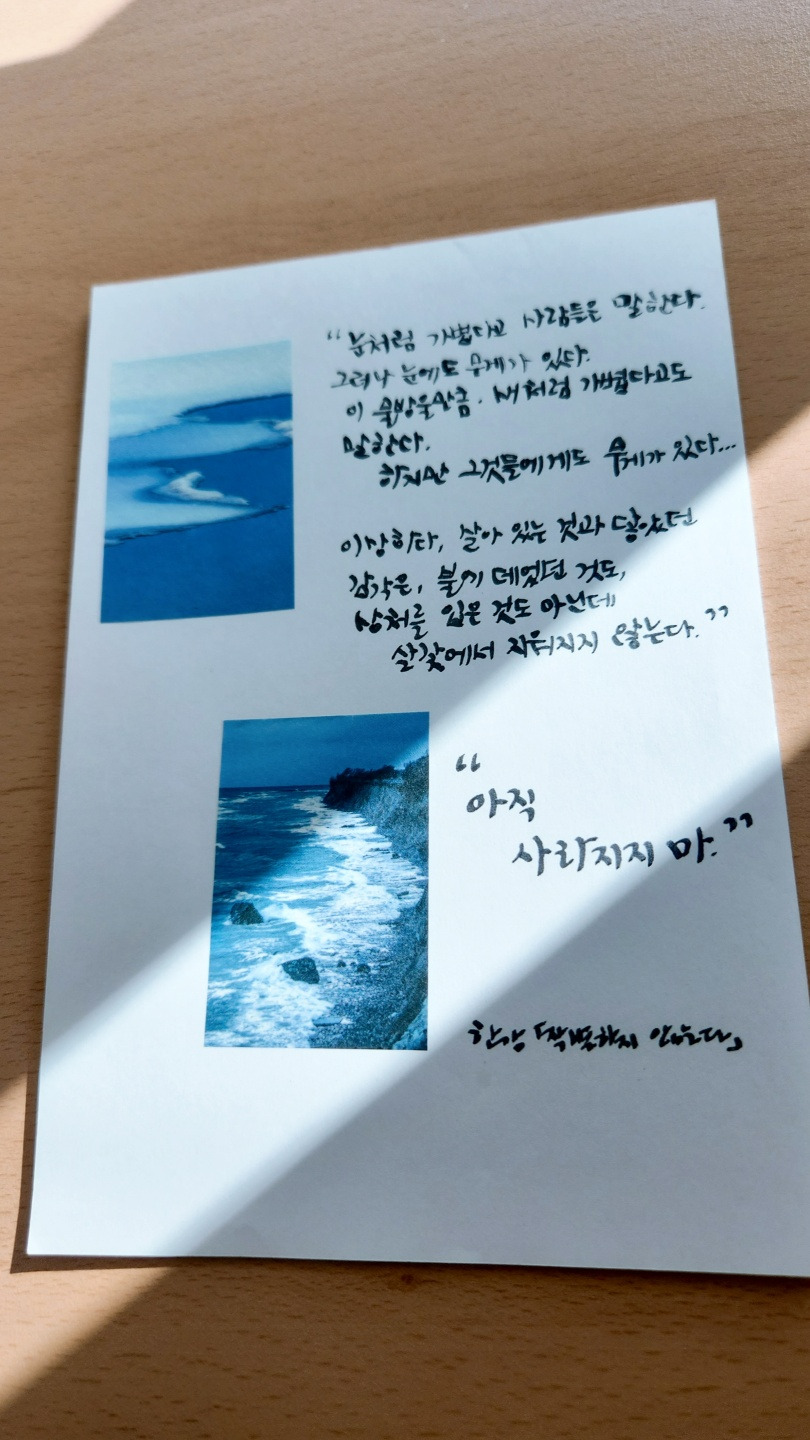 “눈처럼 가볍다고 사람들은 말한다.
그러나 눈에도 무게가 있다.
이 물방울만큼. 새처럼 가볍다고도
말한다.
하지만 그것들에게도 무게가 있다...
이상하다, 살아 있는 것과 닿았던
감각은, 불에 데었던 것도,
상처를 입은 것도 아닌데
살갗에서 지워지지 않는다.”
“
아직
사라지지 마.”
한강 「작별하지 않는다」